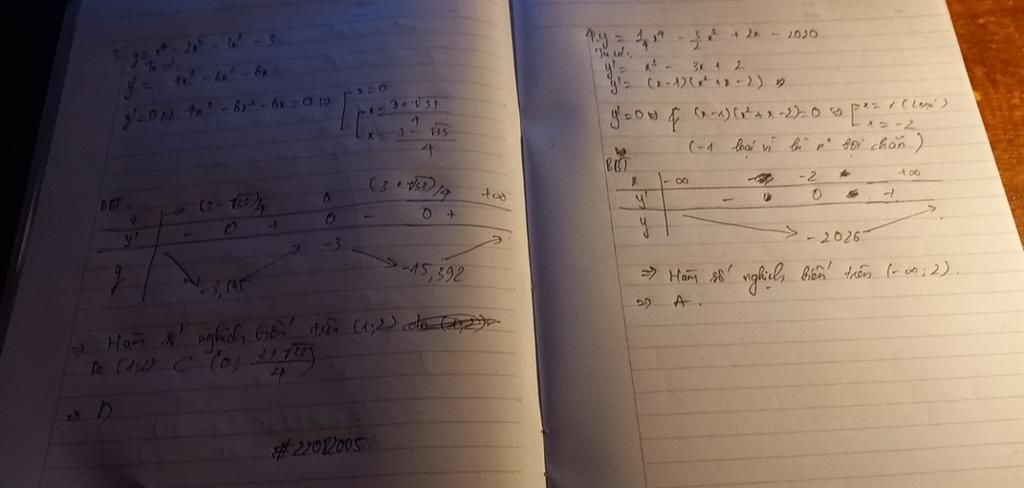 3. y = x⁴ - 2x³ - 3x² - 3
Ta có:
y' = 4x³ - 6x² - 6x
y' = 0 ⇔ 4x³ - 6x² - 6x = 0 ⇔ [ x = 0
[ x = (3 + √33)/4
x = (3 - √33)/4
BBT:
x | -∞ (3 - √33)/4 0 (3 + √33)/4 +∞
y' | - 0 + 0 - 0 +
y | -3 -15,392
⇒ Hàm số nghịch biến trên (1;2)
Do (1;2) ⊂ (0; (3 + √33)/4)
⇒ D
#22082005.
4. y = 1/4 x⁴ - 3/2 x² + 2x - 2020
Ta có:
y' = x³ - 3x + 2
y' = (x - 1)(x² + x - 2) ⇒
y' = 0 ⇔ (x - 1)(x² + x - 2) = 0 ⇔ [ x = 1 (Loại)
x = -2
(-1 loại vì là n⁰ bội chẵn)
BBT
x | -∞ -2 +∞
y' | - 0 +
y | -2026
⇒ Hàm số nghịch biến trên (-∞; 2).
⇒ A.